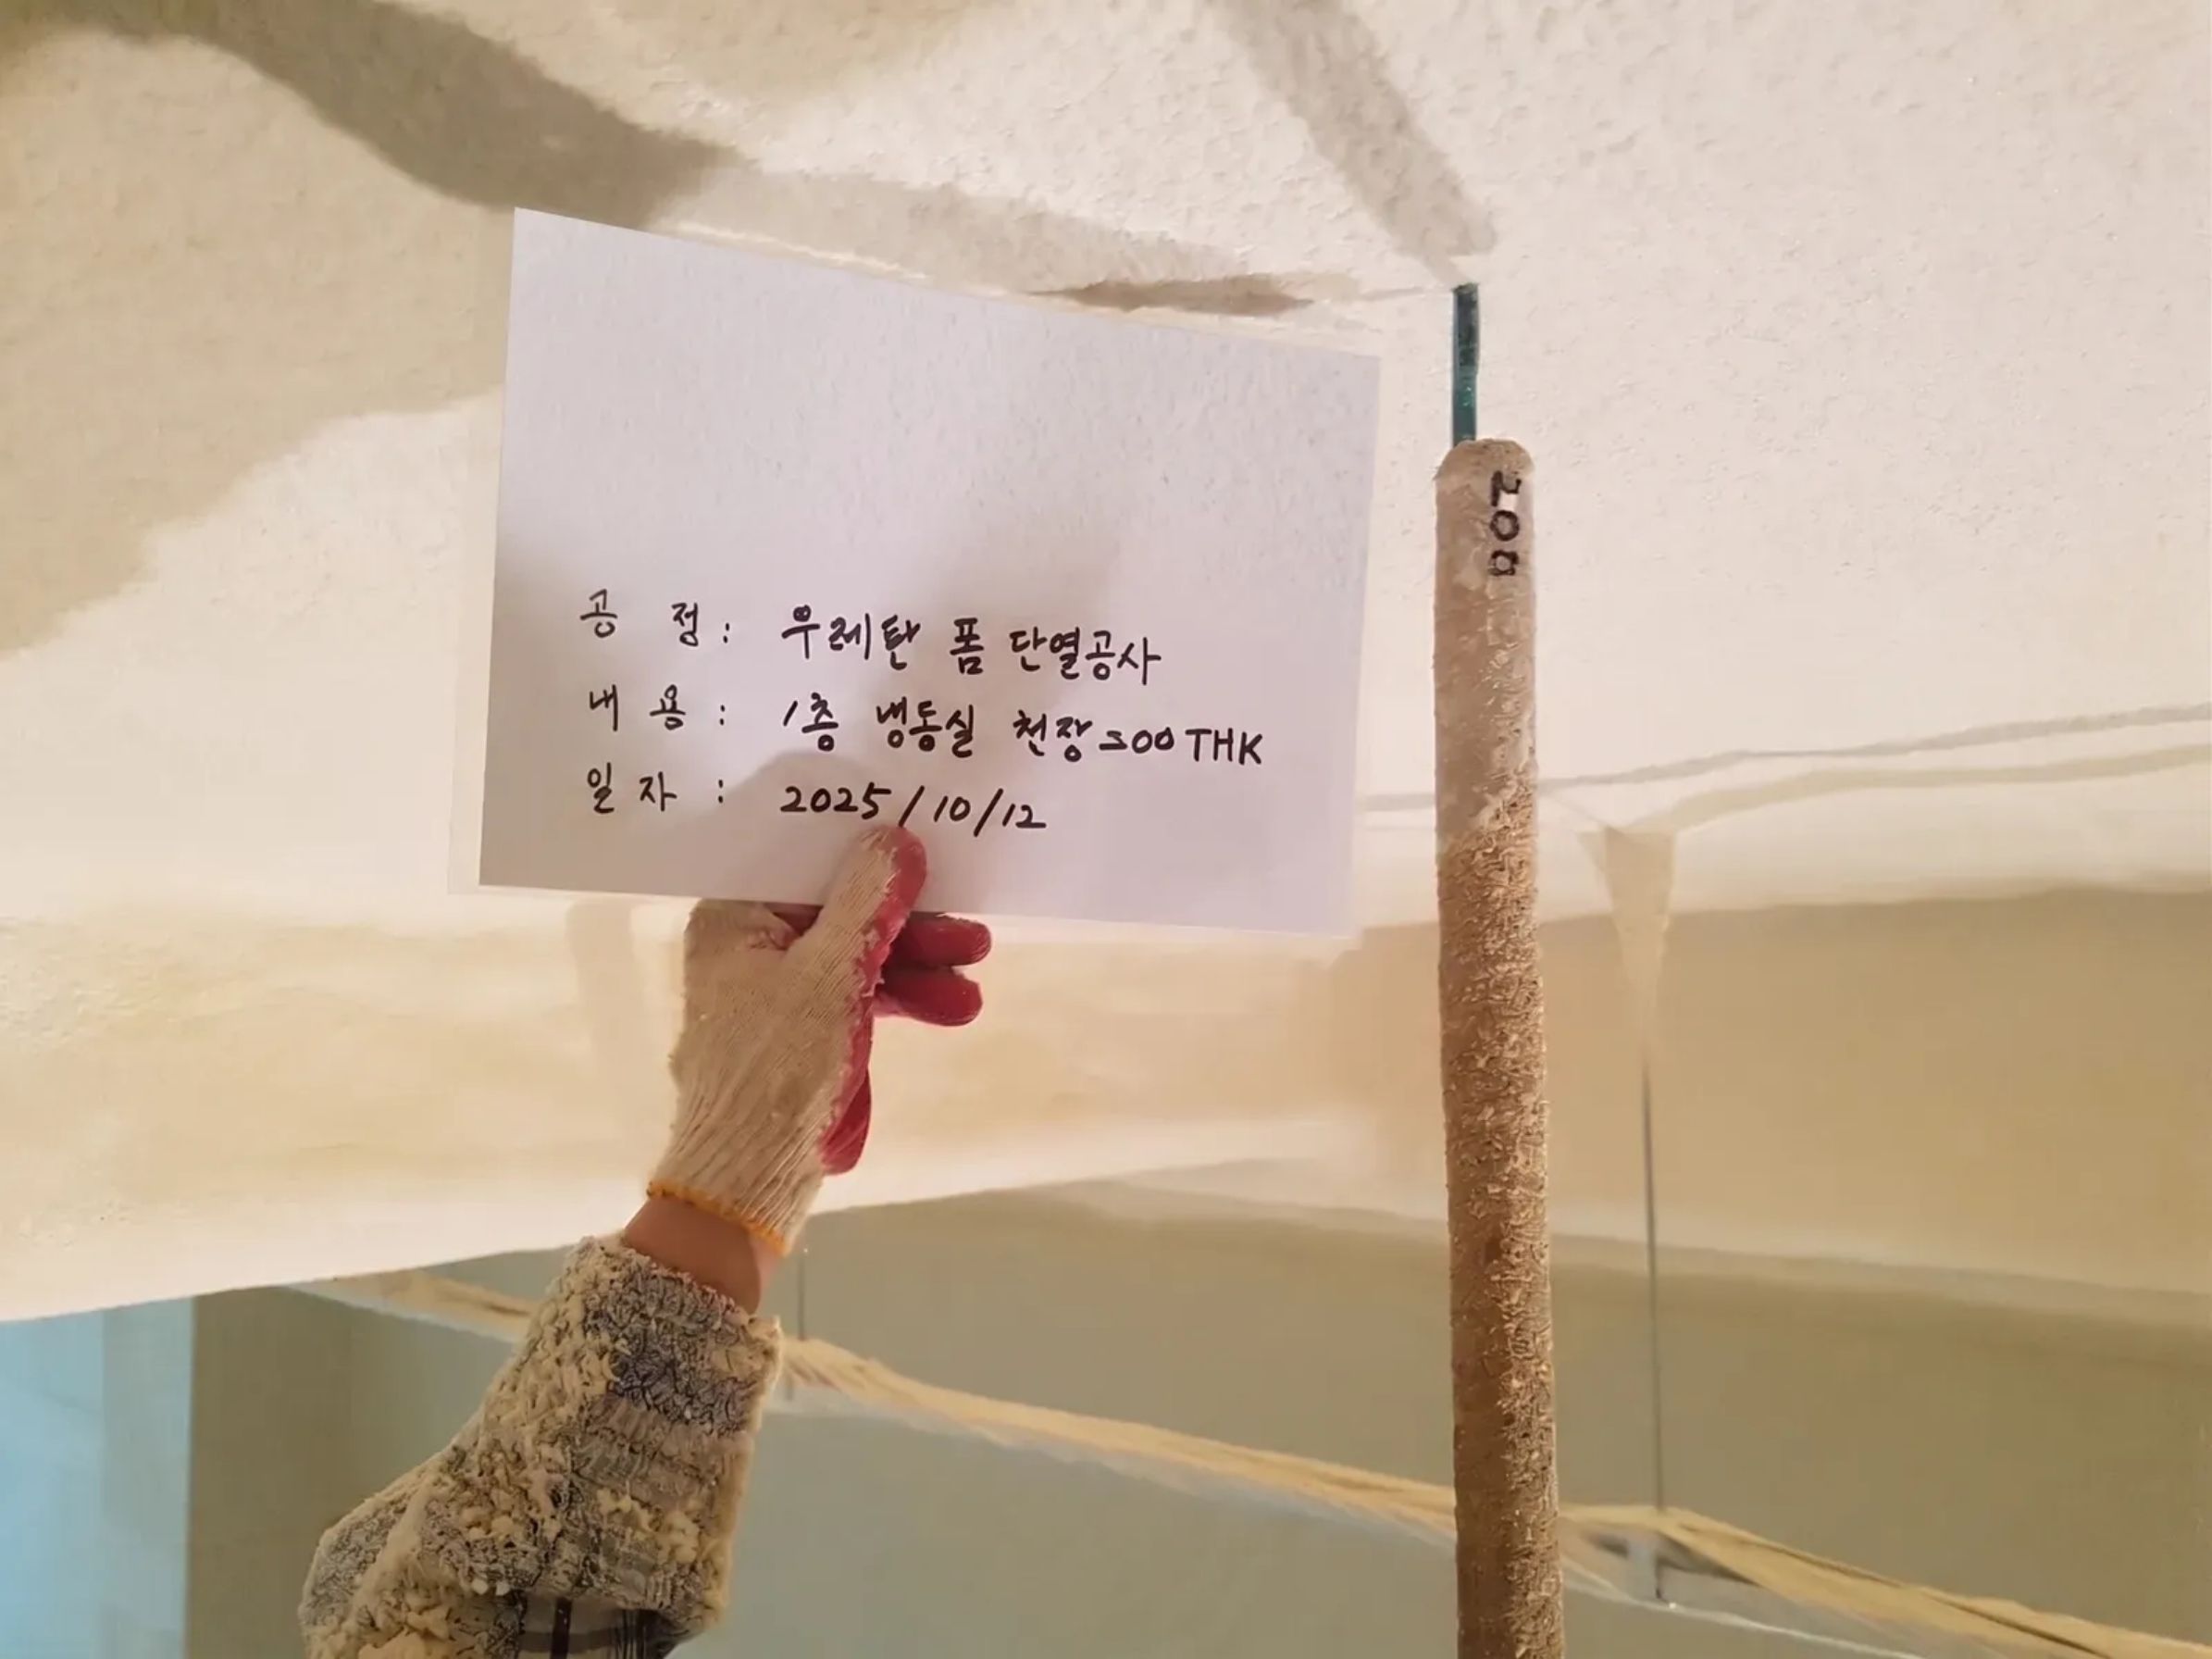 공 정 : 우레탄 폼 단열공사
내 용 : 1층 냉동실 천장 200 THK
일 자 : 2025/10/12
200